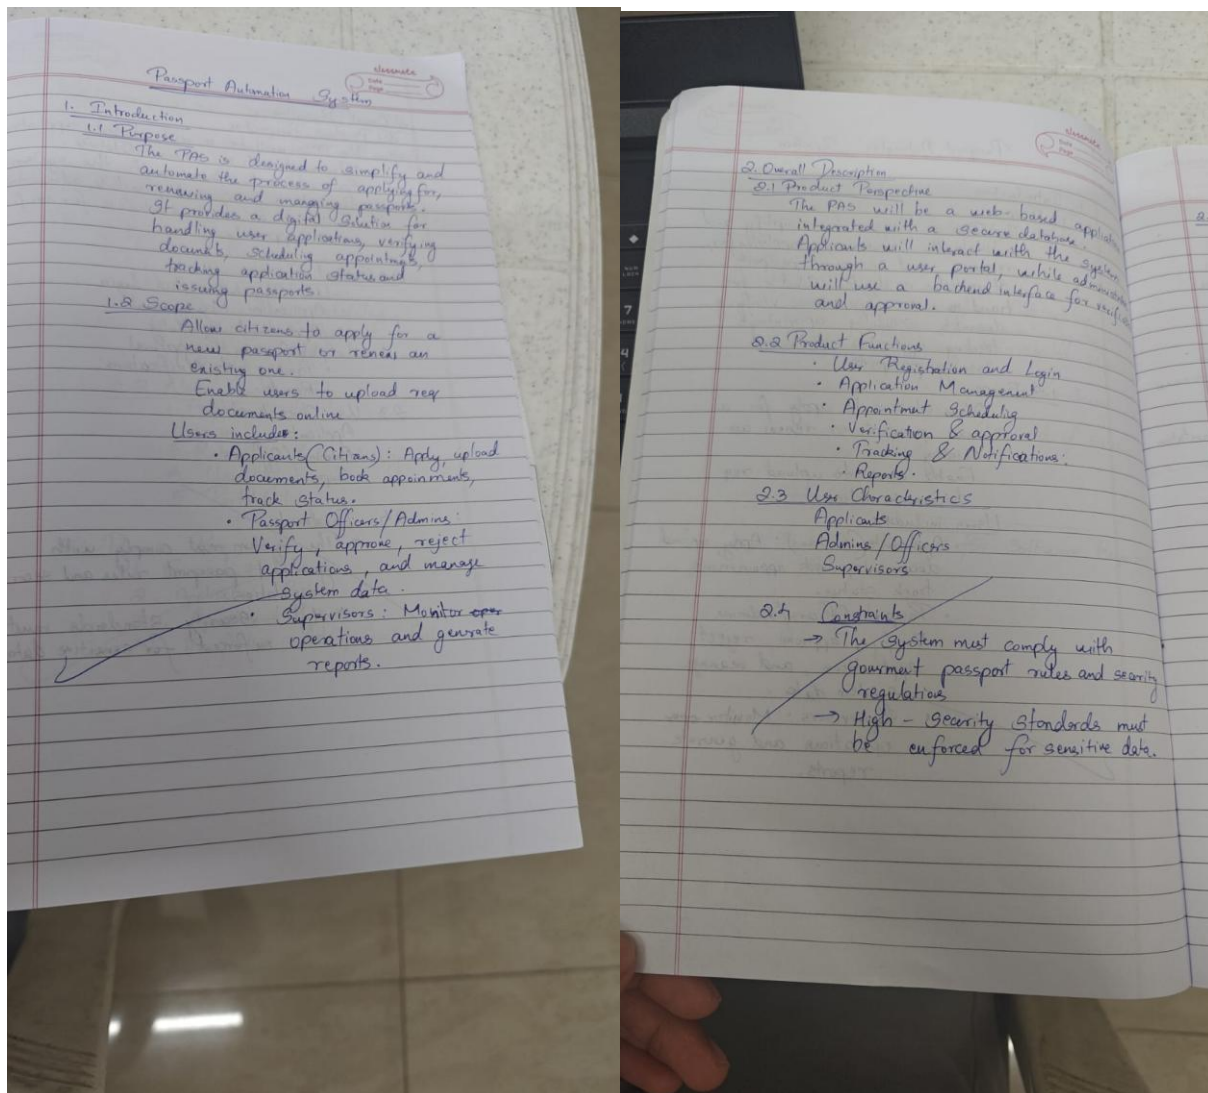 Passport Automation System
classmate
Date
Page
1. Introduction
1.1 Purpose
The PAS is designed to simplify and
automate the process of applying for,
renewing and managing passports.
It provides a digital solution for
handling user applications, verifying
documents, scheduling appointments,
tracking application status and
issuing passports.
1.2 Scope
Allow citizens to apply for a
new passport or renew an
existing one.
Enable users to upload req
documents online
Users include:
• Applicants (Citizens): Apply, upload
documents, book appoinments,
track status.
• Passport Officers/Admins:
Verify, approve, reject
applications, and manage
system data.
• Supervisors: Monitor oper
operations and genrate
reports.
classmate
Date
Page
2. Overall Description
2.1 Product Perspective
The PAS will be a web-based
integrated with a secure database.
Applicants will interact with the system
through a user portal, while
will use a backend interface for
and approval.
2.2 Product Functions
• User Registration and Login
• Application Management
• Appointment Scheduling
• Verification & approval
• Tracking & Notifications:
• Reports.
2.3 User Characteristics
Applicants
Admins/Officers
Supervisors
2.4 Constraints
→ The system must comply with
government passport rules and security
regulations
→ High - security standards must
be enforced for sensitive data.
7
4